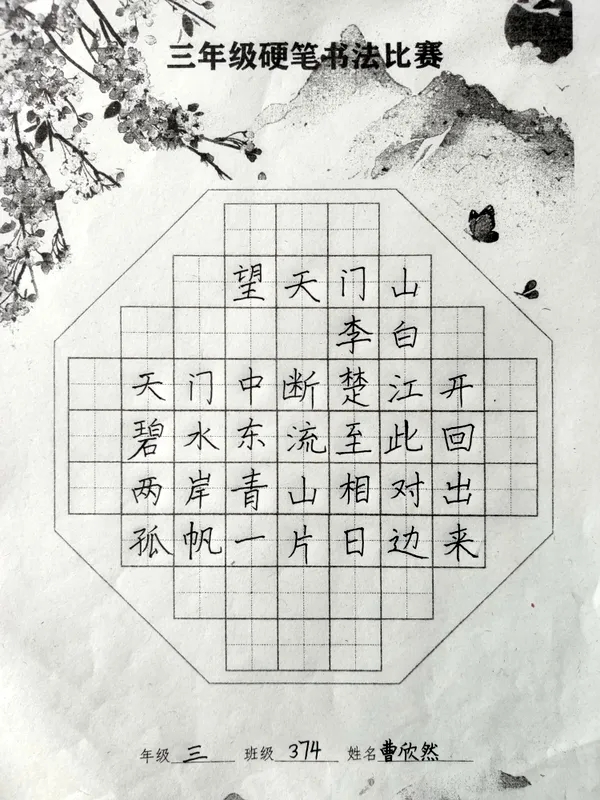 三年级硬笔书法比赛
望天门山
李白
天门中断楚江开
碧水东流至此回
两岸青山相对出
孤帆一片日边来
年级 三 班级 374 姓名 曹欣然